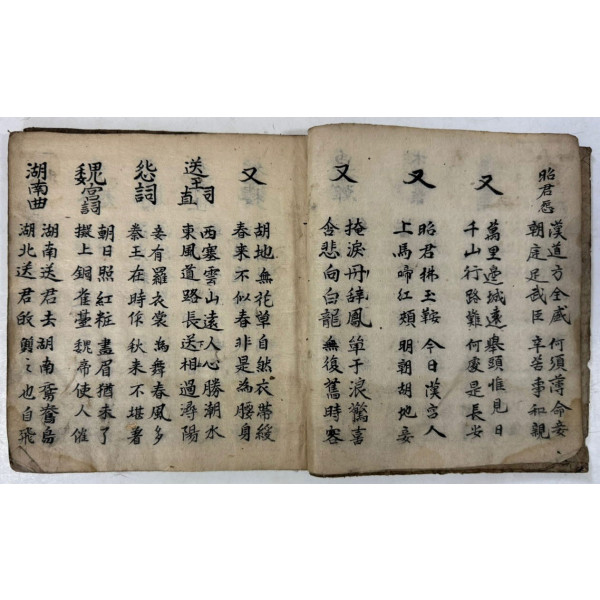 昭君怨
漢道方全盛何須薄命妾
朝庭足武臣辛苦事和親
又
萬里邊城遠舉頭惟見日
千山行路難何處是長安
又
昭君拂玉鞍今日漢宮人
上馬啼紅頰明朝胡地妾
又
掩淚丹辭鳳單于浪驚喜
含悲向白龍無復舊時容
又
胡地無花草自然衣帶緩
春來不似春非是為腰身
送王司直
西塞雲山遠人心勝潮水
東風道路長送相過潯陽
怨詞
妾有羅衣裳為舞春風多
秦王在時作秋來不堪着
魏宮詞
朝日照紅粧畫眉猶未了
擬上銅雀臺魏帝使人催
湖南曲
湖南送君去湖南鴛鴦鳥
湖北送君的翩〻也自飛